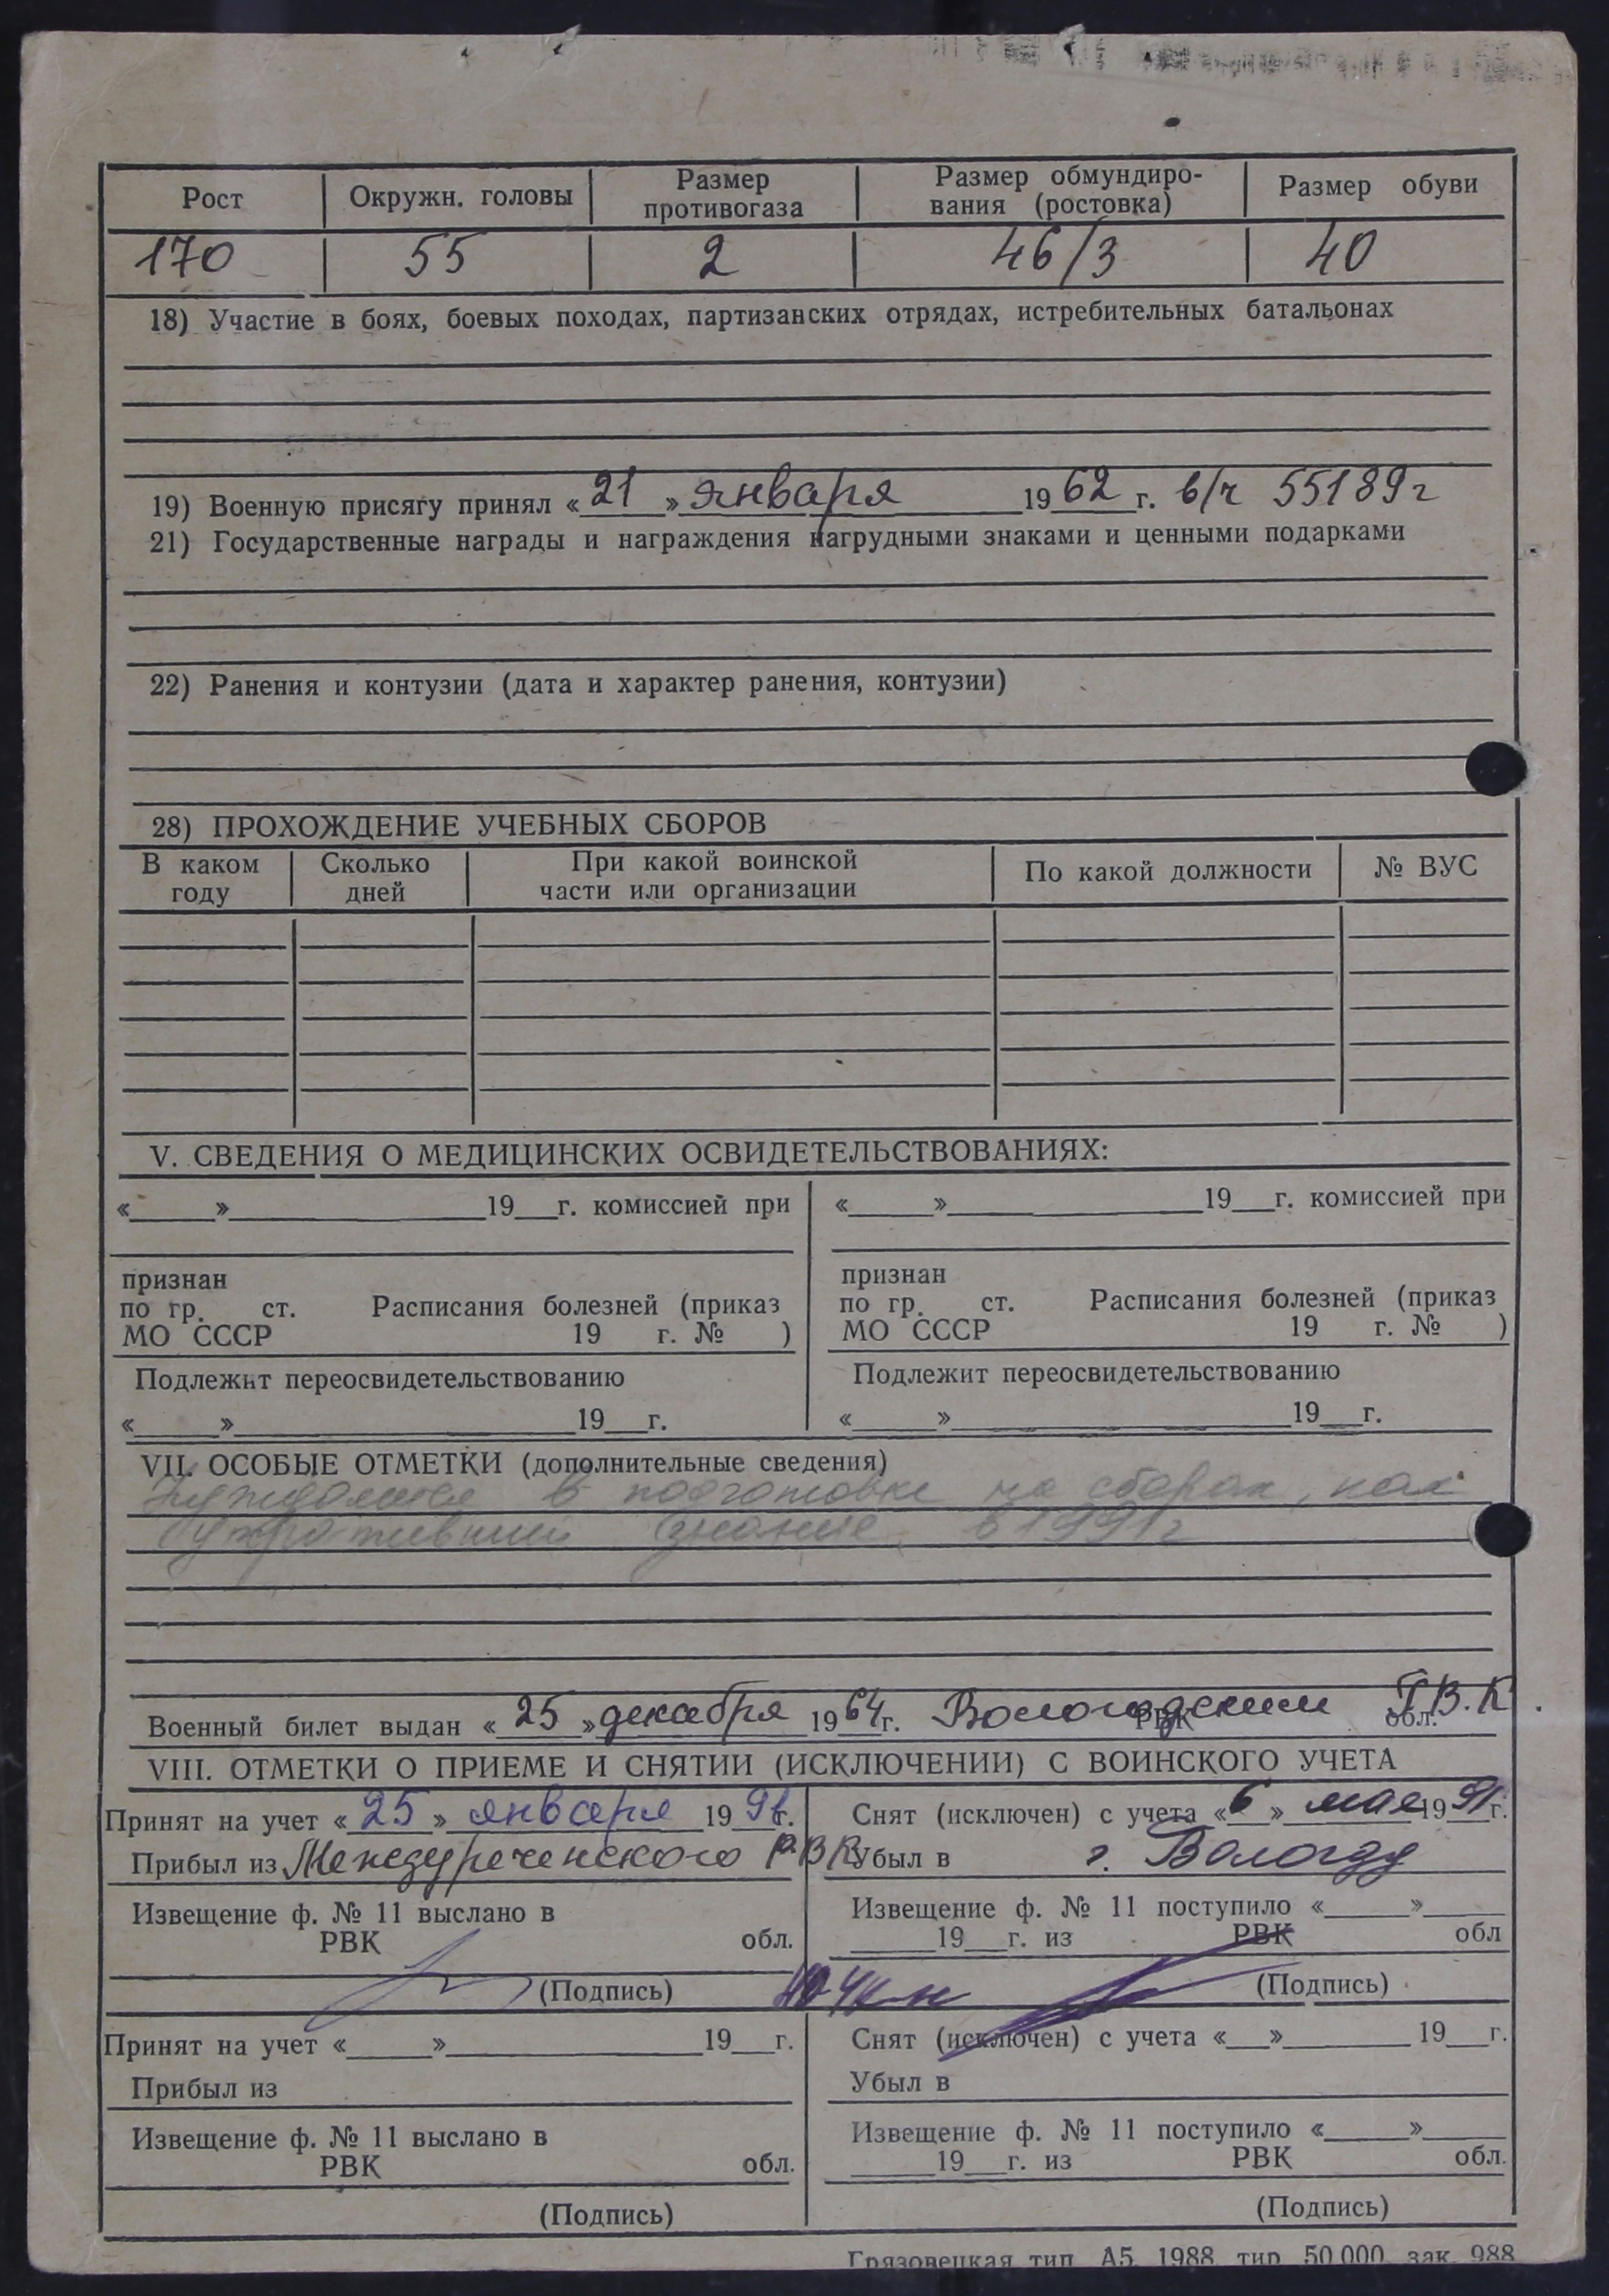 Рост Окружн. головы Размер противогаза Размер обмундиро-вания (ростовка) Размер обуви
170 55 2 46/3 40
18) Участие в боях, боевых походах, партизанских отрядах, истребительных батальонах
19) Военную присягу принял «21» января 1962 г. в/ч 55189г
21) Государственные награды и награждения нагрудными знаками и ценными подарками
22) Ранения и контузии (дата и характер ранения, контузии)
28) ПРОХОЖДЕНИЕ УЧЕБНЫХ СБОРОВ
В каком году Сколько дней При какой воинской части или организации По какой должности № ВУС
V. СВЕДЕНИЯ О МЕДИЦИНСКИХ ОСВИДЕТЕЛЬСТВОВАНИЯХ:
«_____»_______________19__г. комиссией при
признан
по гр. ст. Расписания болезней (приказ
МО СССР 19 г. № )
Подлежит переосвидетельствованию
«_____»____________________19__г.
«_____»_______________19__г. комиссией при
признан
по гр. ст. Расписания болезней (приказ
МО СССР 19 г. № )
Подлежит переосвидетельствованию
«_____»____________________19__г.
VII. ОСОБЫЕ ОТМЕТКИ (дополнительные сведения)
в подготовке на сборах, как
утративший знание в 1991г
Военный билет выдан «25» декабря 1964г. Вологодским РВК обл. Г.В.К.
VIII. ОТМЕТКИ О ПРИЕМЕ И СНЯТИИ (ИСКЛЮЧЕНИИ) С ВОИНСКОГО УЧЕТА
Принят на учет «25» января 199 г.
Прибыл из Междуреченского РВК
Извещение ф. № 11 выслано в
РВК обл.
(Подпись)
Снят (исключен) с учета «6» мая 1991г.
Убыл в г. Вологду
Извещение ф. № 11 поступило «_____»_____
_____19__г. из РВК обл
(Подпись)
Принят на учет «_____»_______________19__г.
Прибыл из
Извещение ф. № 11 выслано в
РВК обл.
(Подпись)
Снят (исключен) с учета «__»________19__г.
Убыл в
Извещение ф. № 11 поступило «_____»_____
_____19__г. из РВК обл.
(Подпись)
Грязовецкая тип. А5. 1988. тир. 50.000 зак. 988